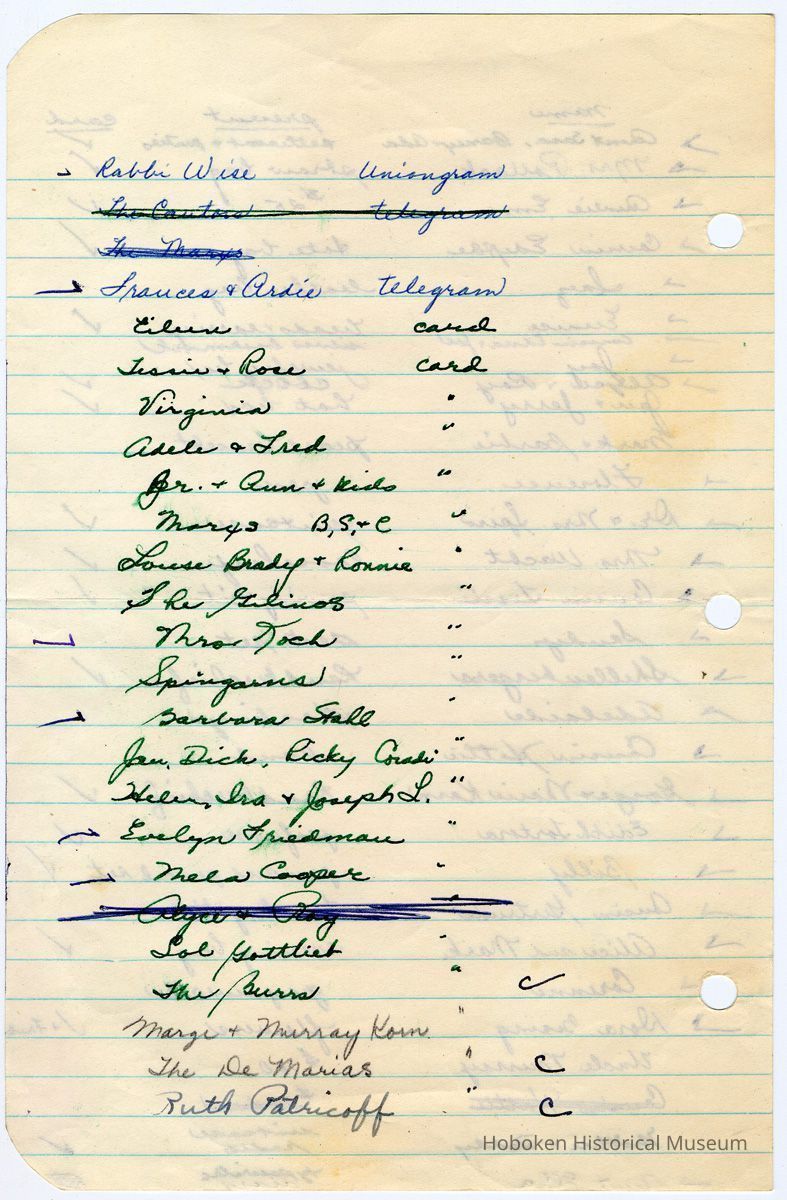 Rabbi Wise Uniongram
The Cantors telegram
The Marxs
Frances & Ardie telegram
Eileen card
Tessie + Rose card
Virginia "
Adele & Fred "
Jr. + Ann + kids "
Marxs B, S, + C "
Louise Brady + Ronnie "
The Gelinos "
Mrs Koch "
Spingarns "
Barbara Stahl "
Jan, Dick, Ricky Coradi "
Helen, Ira & Joseph L. "
Evelyn Friedman "
Mela Cooper "
Alyce & Ray "
Sol Gottlieb "
The Burrs " C
Marge + Murray Korn "
The De Marias " C
Ruth Patricoff " C
Hoboken Historical Museum